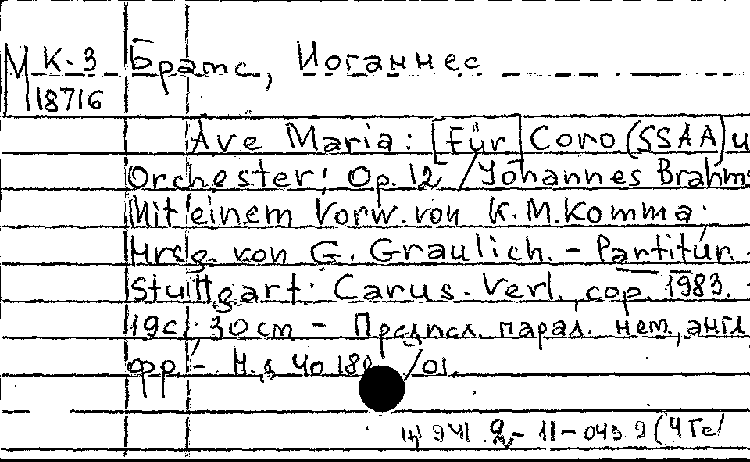 М К-3 Брамс, Иоганнес
18716
Ave Maria: [Für] Coro (SSAA) u
Orchester; Op. 12 / Johannes Brahms
Mit einem Vorw. von K. M. Komma;
Hrsg. von G. Graulich. - Partitur. -
Stuttgart: Carus-Verl., cop. 1983. -
19 с.; 30 cm - Предисл. парал. нем., англ.
фр. - Н.д. 40.180/01.